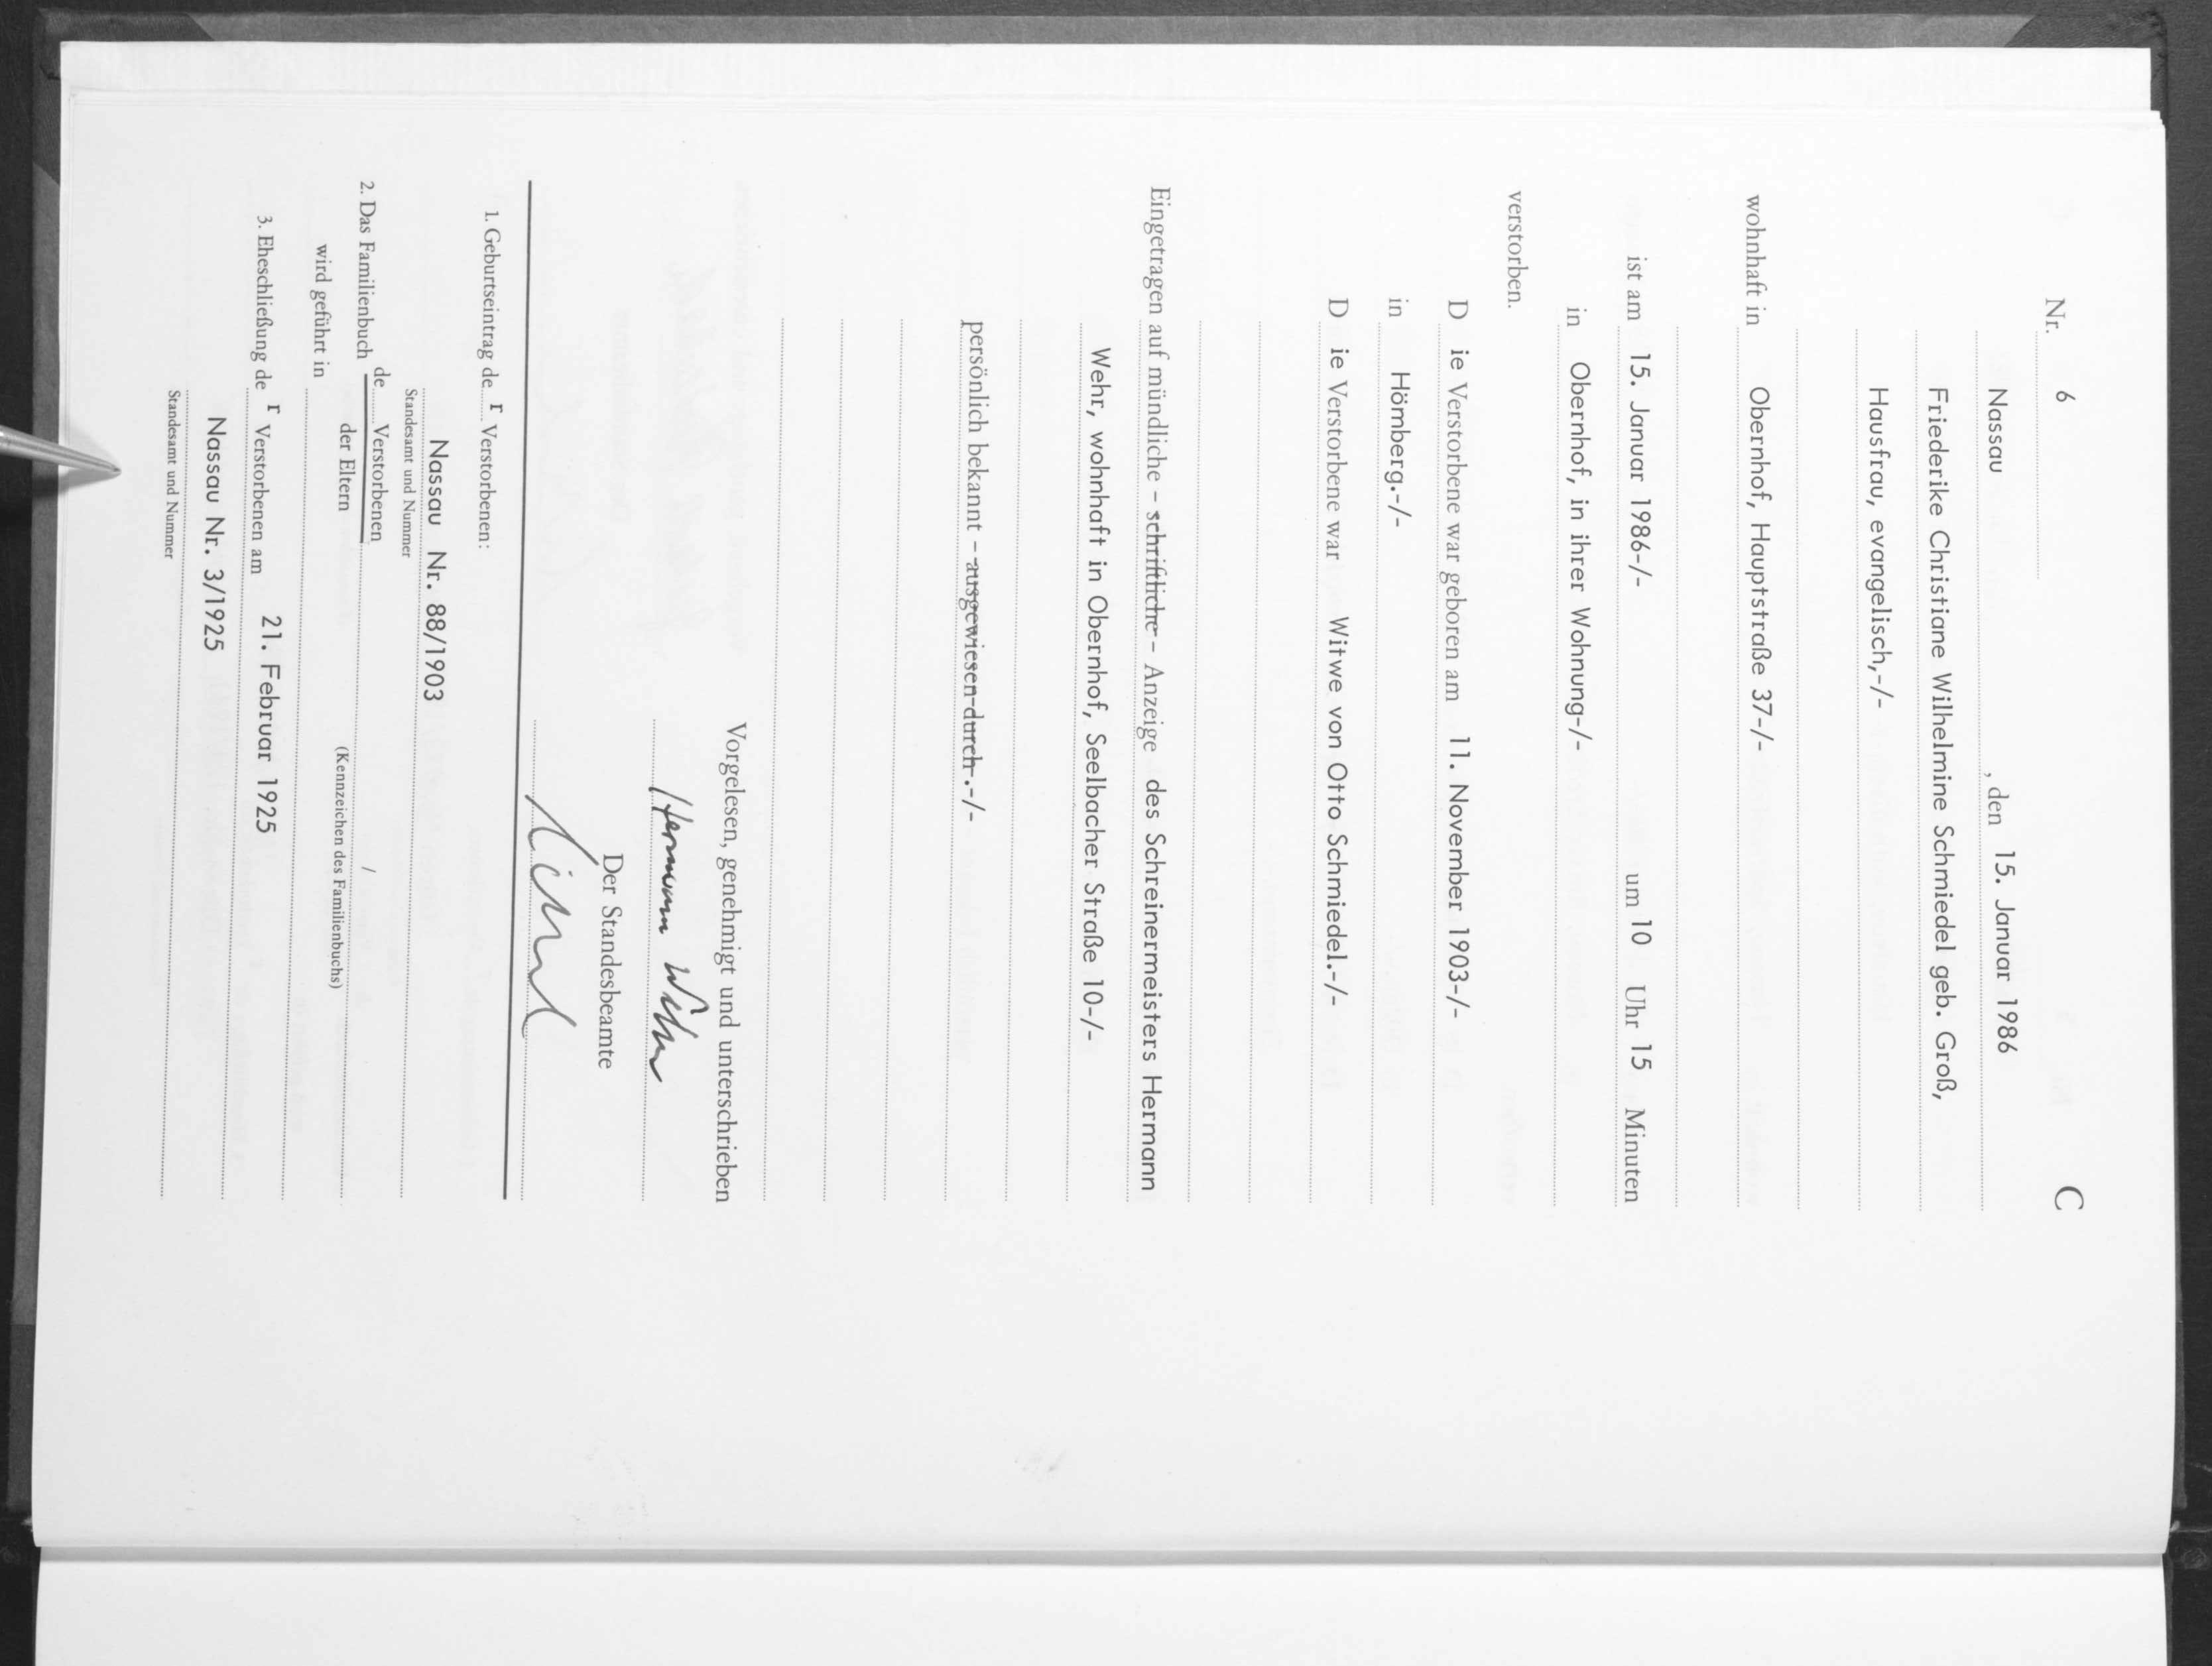 Nr. 6 C
Nassau, den 15. Januar 1986
Friederike Christiane Wilhelmine Schmiedel geb. Groß,
Hausfrau, evangelisch,-/-
wohnhaft in Obernhof, Hauptstraße 37-/-
ist am 15. Januar 1986-/- um 10 Uhr 15 Minuten
in Obernhof, in ihrer Wohnung-/-
verstorben.
D ie Verstorbene war geboren am 11. November 1903-/-
in Hömberg.-/-
D ie Verstorbene war Witwe von Otto Schmiedel.-/-
Eingetragen auf mündliche - schriftliche - Anzeige des Schreinermeisters Hermann
Wehr, wohnhaft in Obernhof, Seelbacher Straße 10-/-
persönlich bekannt - ausgewiesen durch .-/-
Vorgelesen, genehmigt und unterschrieben
Hermann Wehr
Der Standesbeamte
1. Geburtseintrag de r Verstorbenen:
Nassau Nr. 88/1903
Standesamt und Nummer
2. Das Familienbuch de Verstorbenen /
der Eltern (Kennzeichen des Familienbuchs)
wird geführt in
3. Eheschließung de r Verstorbenen am 21. Februar 1925
Nassau Nr. 3/1925
Standesamt und Nummer